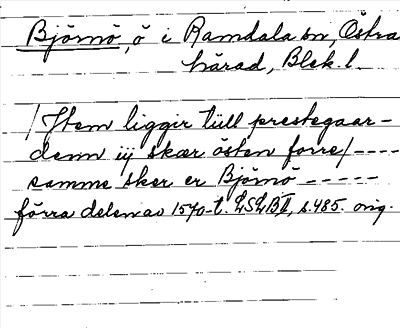 Björnö, ö i Ramdala sn, Östra
härad, Blek. l.
/Jtem liggir tiill prestegaar-
denn iij skær östen forre/ ----
samme sker er Björnö -----
förra delen av 1570-t. LSLB II, s. 485. orig.